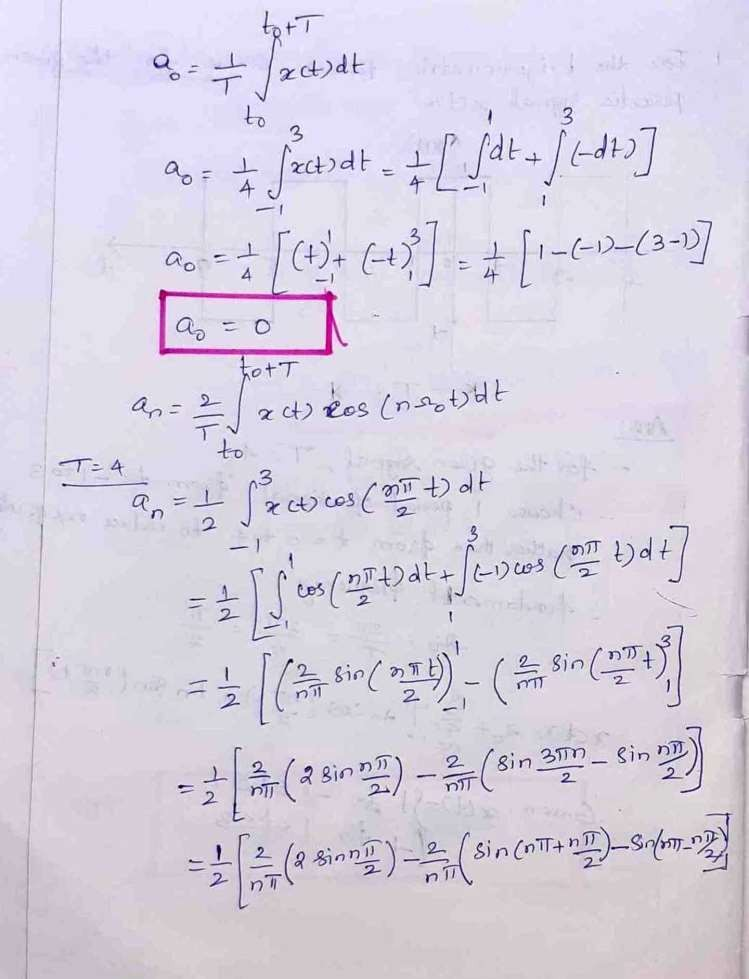 a₀ = 1/T ∫_{t₀}^{t₀+T} x(t) dt
a₀ = 1/4 ∫_{-1}^{3} x(t) dt = 1/4 [ ∫_{-1}^{1} dt + ∫_{1}^{3} (-dt) ]
a₀ = 1/4 [ (t)_{-1}^{1} + (-t)_{1}^{3} ] = 1/4 [1-(-1)-(3-1)]
a₀ = 0
aₙ = 2/T ∫_{t₀}^{t₀+T} x(t) cos (nΩ₀t) dt
T=4
aₙ = 1/2 ∫_{-1}^{3} x(t) cos (nπ/2 t) dt
= 1/2 [ ∫_{-1}^{1} cos (nπ/2 t) dt + ∫_{1}^{3} (-1) cos (nπ/2 t) dt ]
= 1/2 [ (2/nπ sin (nπt/2))_{-1}^{1} - (2/nπ sin (nπ/2 t)_{1}^{3} ]
= 1/2 [ 2/nπ (2 sin nπ/2) - 2/nπ (sin 3πn/2 - sin nπ/2) ]
= 1/2 [ 2/nπ (2 sin nπ/2) - 2/nπ (sin (nπ + nπ/2) - sin (nπ - nπ/2) ]